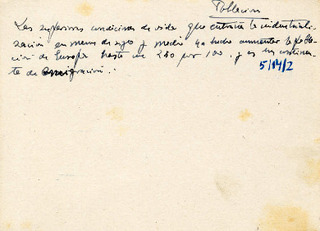 Población
Las superiores condiciones de vida que entraña la industriali-
zación en menos de siglo y medio ha hecho aumentar la pobla-
ción de Europa hasta un 280 por 100. y es un continen-
te de emigración.
5/04/2